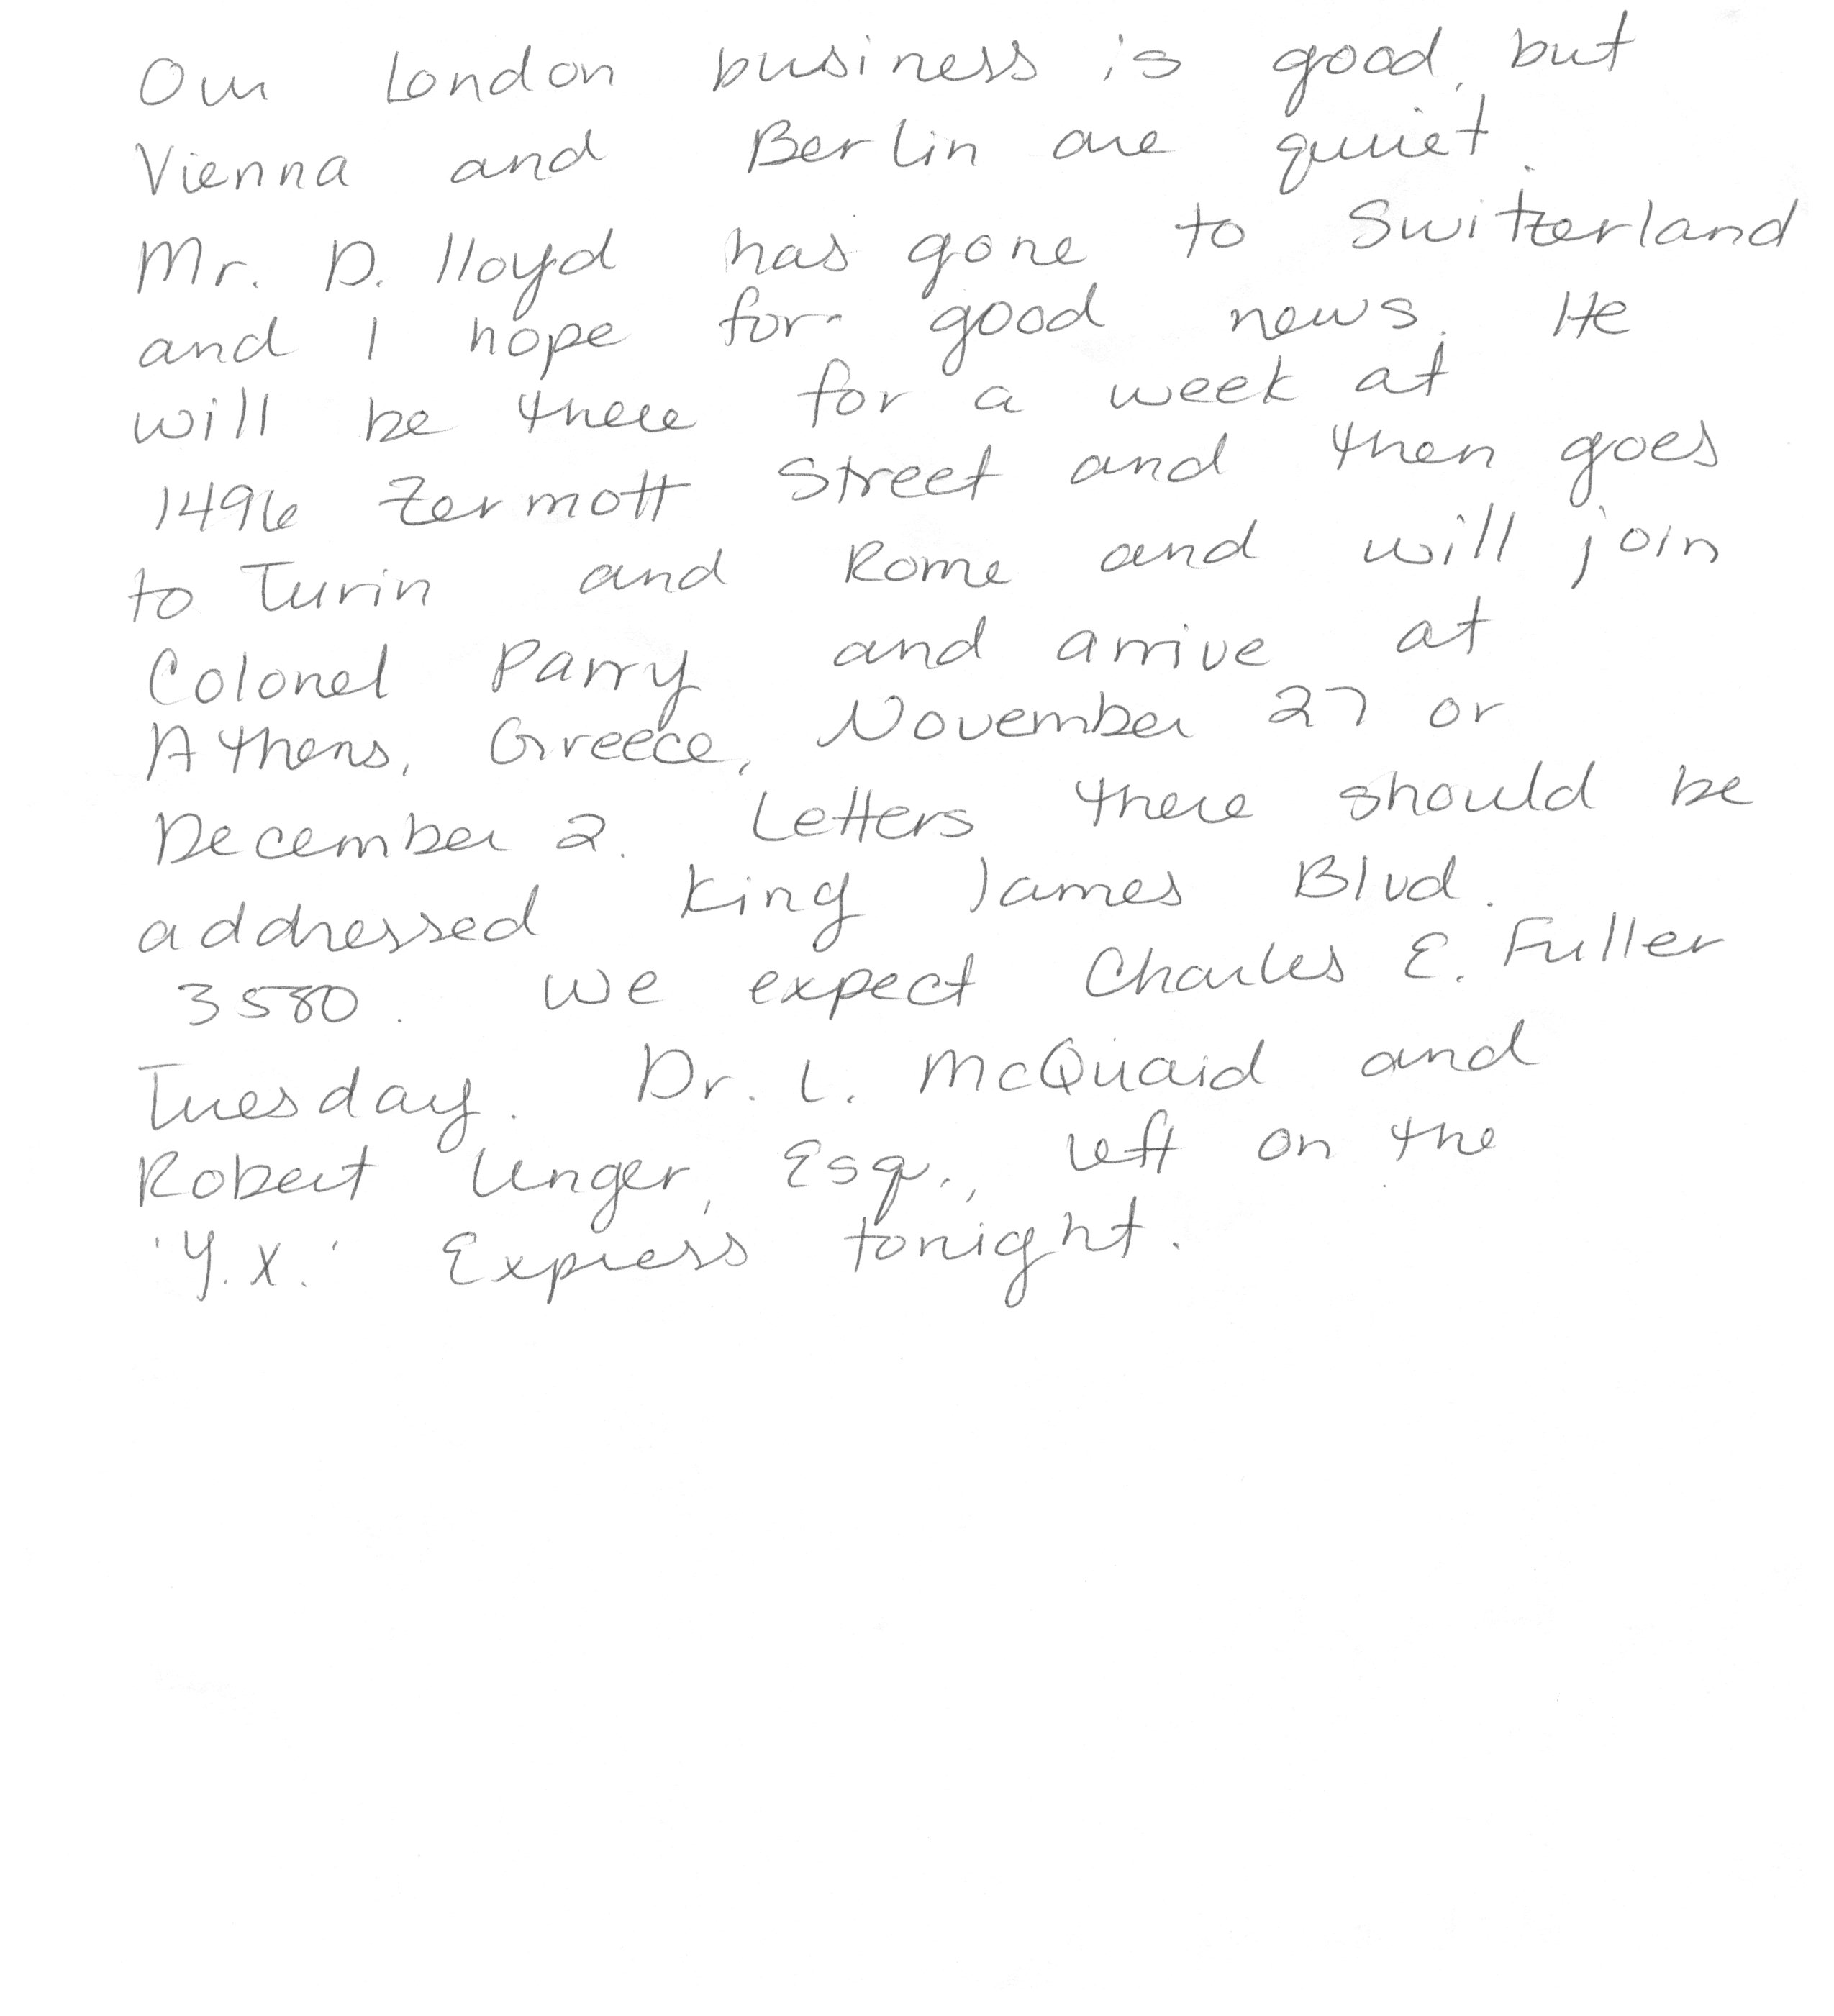 Our London business is good, but
Vienna and Berlin are quiet.
Mr. D. lloyd has gone to Switzerland
and I hope for good news. He
will be there for a week at
1496 Zermott Street and then goes
to Turin and Rome and will join
Colonel Parry and arrive at
Athens, Greece, November 27 or
December 2. Letters there should be
addressed King James Blvd.
3580. We expect Charles E. Fuller
Tuesday. Dr. L. McQuaid and
Robert Unger, Esq., left on the
'Y.X.' Express tonight.